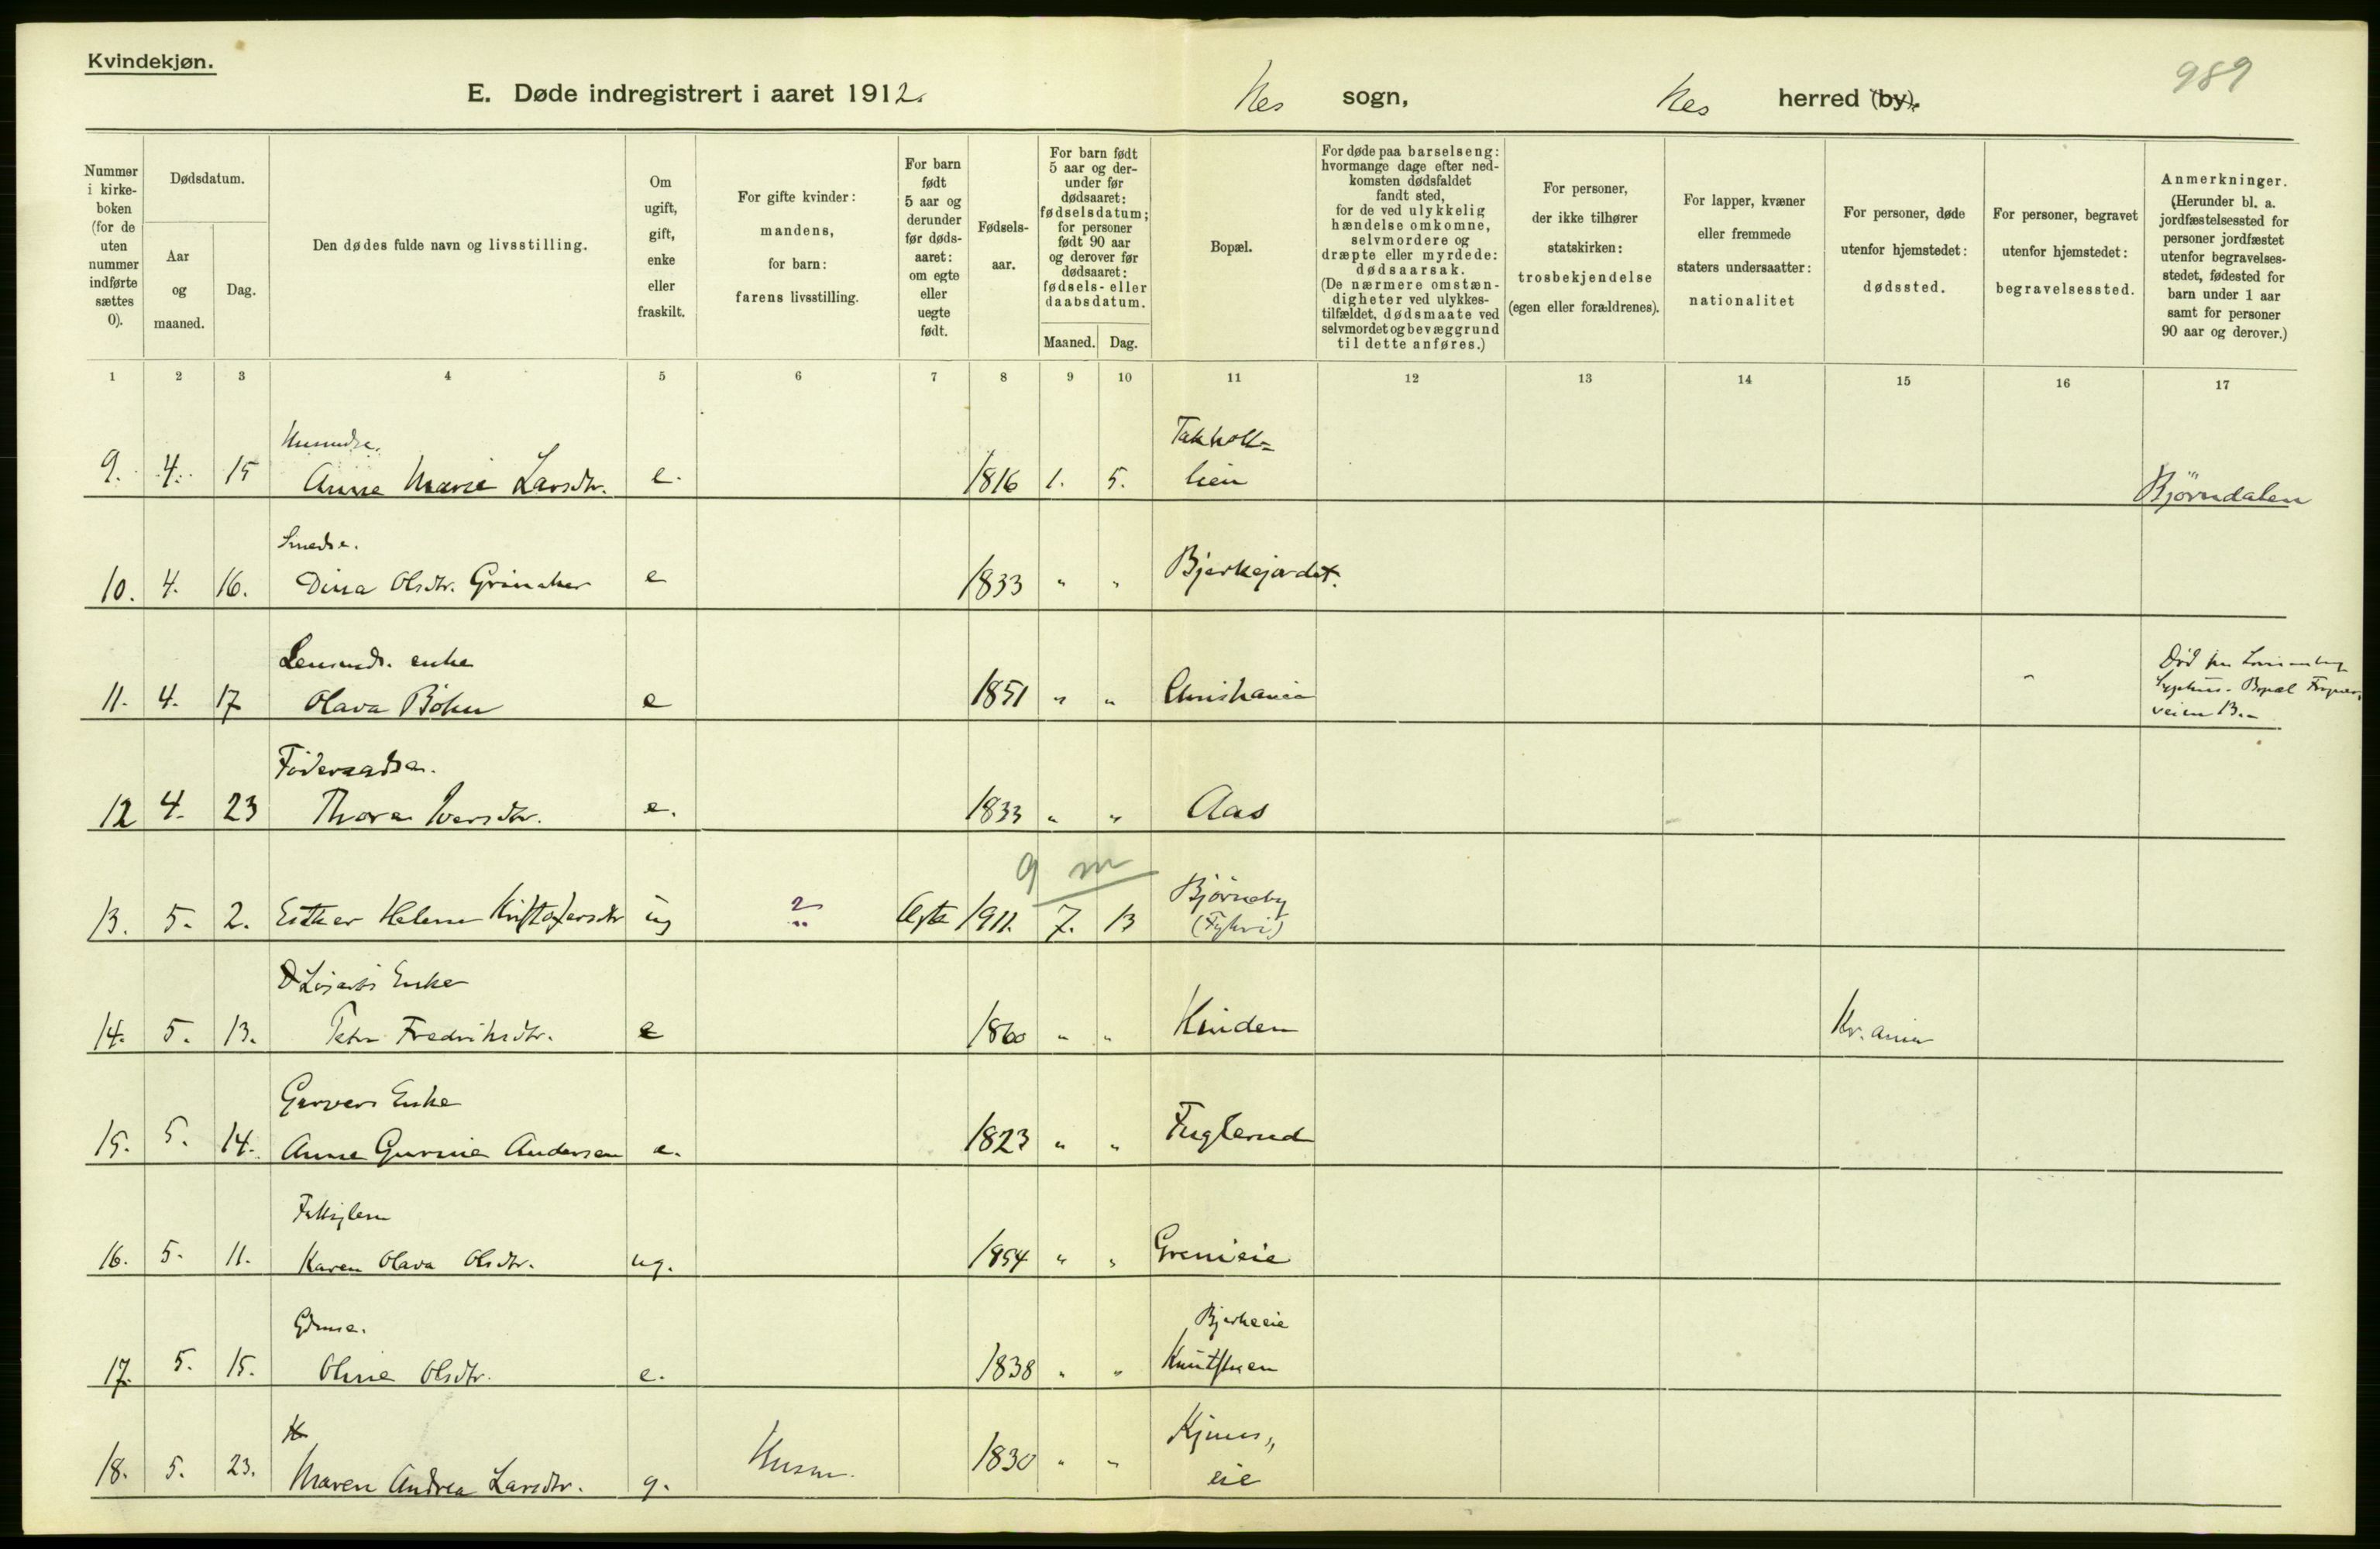 Kvindekjøn.
989
E. Døde indregistrert i aaret 1912. Nes sogn, Nes herred (by).
Nummer i kirke-boken (for de uten nummer indførte sættes 0).
Dødsdatum.
Aar og maaned.
Dag.
Den dødes fulde navn og livsstilling.
Om ugift, gift, enke eller fraskilt.
For gifte kvinder: mandens, for barn: farens livsstilling.
For barn født 5 aar og derunder før døds-aaret: om egte eller uegte født.
Fødsels-aar.
For barn født 5 aar og der-under før dødsaaret: fødselsdatum; for personer født 90 aar og derover før dødsaaret: fødsels- eller daabsdatum.
Maaned.
Dag.
Bopæl.
For døde paa barselseng: hvormange dage efter ned-komsten dødsfaldet fandt sted, for de ved ulykkelig hændelse omkomne, selvmordere og dræpte eller myrdede: dødsaarsak. (De nærmere omstæn-digheter ved ulykkes-tilfældet, dødsmaate ved selvmordet og bevæggrund til dette anføres.)
For personer, der ikke tilhører statskirken: trosbekjendelse (egen eller forældrenes).
For lapper, kvæner eller fremmede staters undersaatter: nationalitet
For personer, døde utenfor hjemstedet: dødssted.
For personer, begravet utenfor hjemstedet: begravelsessted.
Anmerkninger. (Herunder bl. a. jordfæstelsessted for personer jordfæstet utenfor begravelses-stedet, fødested for barn under 1 aar samt for personer 90 aar og derover.)
1 2 3 4 5 6 7 8 9 10 11 12 13 14 15 16 17
9. 4. 15 Anne Marie Larsdtr. e. 1816 1. 5. lien Bjørndalen
Smedse.
10. 4. 16. Dina Olsdtr. Grinaker e 1833 " " Bjerkejordet.
enke
11. 4. 17 Olava Bøhn e 1851 " " Christiania
Bopæl
veien 13.
Føderaadse.
12 4. 23 Thora Iversdtr. e. 1833 " " Aas
9 m
13. 5. 2. Esther Helene Kristofersdtr ug ? Ægte 1911. 7. 13 Bjørneby
Enke
14. 5. 13. Fredriksdtr. e 1860 " " Kinden Kr.ania
Garvers Enke
15. 5. 14. Anne Gurine Andersen e. 1823 " " Fuglerud
Fattiglem
16. 5. 11. Karen Olava Olsdtr. ug. 1854 " " Grenieie
Bjerkeeie
17. 5. 15. Oline Olsdtr. e. 1838 " " Knutstuen
18. 5. 23. Maren Andrea Larsdtr. g. Husm. 1830 " " eie